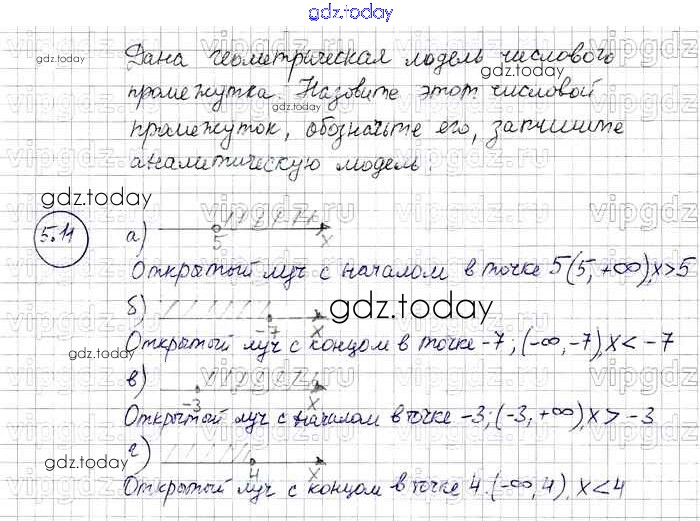 gdz.today
Дана геометрическая модель числового
gdz.today gdz.today
промежутка. Назовите этот числовой
gdz.today
промежуток, обозначьте его, запишите
vipgdz.ru
аналитическую модель.
gdz.today
5.11 а) 5 x
Открытый луч с началом в точке 5 (5, +∞), x>5
б) -7 x
gdz.today
Открытый луч с концом в точке -7; (-∞, -7), x < -7
gdz.today
в) -3 x
Открытый луч с началом в точке -3; (-3, +∞), x > -3
г) 4 x
gdz.today
Открытый луч с концом в точке 4. (-∞, 4), x<4
gdz.today